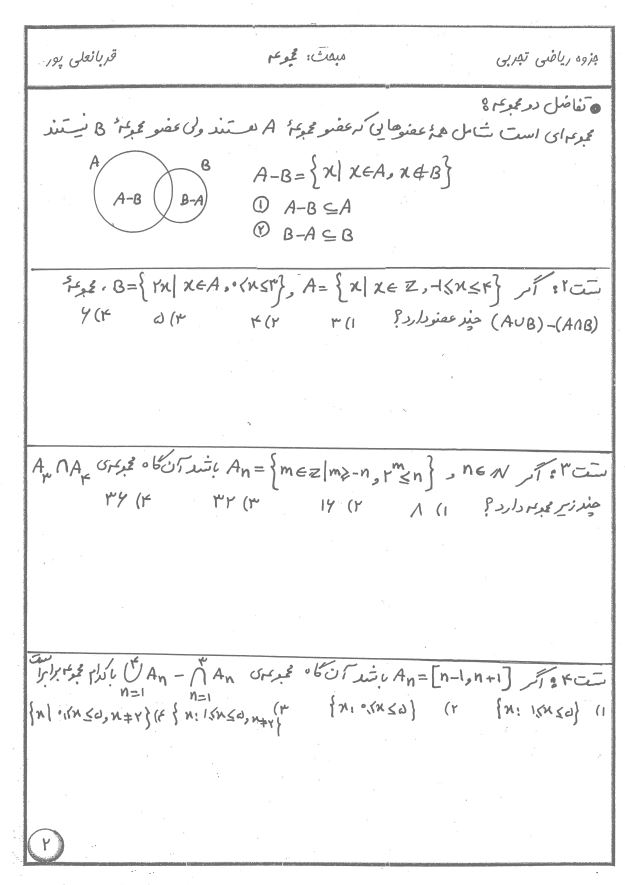 جزوه ریاضی تجربی مبحث: مجموعه قربانعلی پور
● تفاضل دو مجموعه:
مجموعه‌ای است شامل همهٔ عضوهایی که عضو مجموعهٔ A هستند ولی عضو مجموعهٔ B نیستند
A B
A-B B-A
A-B={x| x∈A, x∉B}
① A-B⊆A
② B-A⊆B
تست ۲: اگر A={x| x∈Z, -1≤x≤۴} و B={۲x| x∈A, ۰<x≤۳}، مجموعهٔ
(A∪B)-(A∩B) چند عضو دارد؟ ۱) ۳ ۲) ۴ ۳) ۵ ۴) ۶
تست ۳: اگر n∈N و An={m∈Z|m≥-n, ۲^m≤n} باشد آن گاه مجموعه‌ی A۳∩A۴
چند زیر مجموعه دارد؟ ۱) ۸ ۲) ۱۶ ۳) ۳۲ ۴) ۳۶
تست ۴: اگر An=[n-1, n+1] باشد آن گاه مجموعه‌ی ⋃(n=1..۴) An - ⋂(n=1..۳) An با کدام مجموعه برابر است
۱) {x: 1≤x≤۵} ۲) {x: ۰≤x≤۵} ۳) {x: 1≤x≤۵, x≠۲} ۴) {x| ۰≤x≤۵, x≠۲}
۲